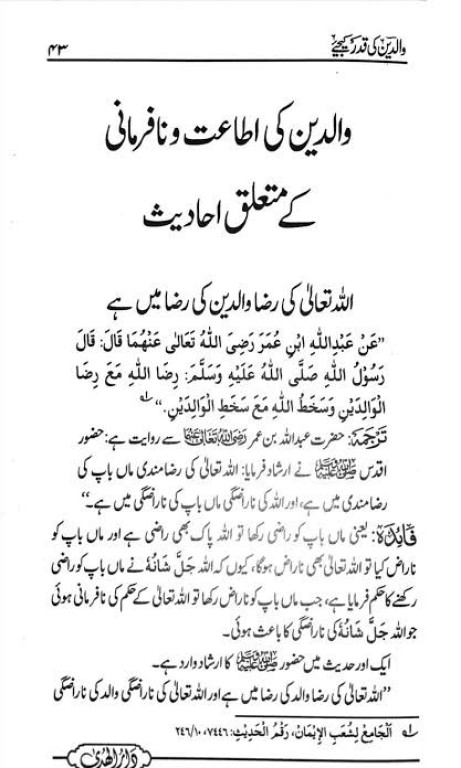 والدین کی قدر کیجیے ۴۳
والدین کی اطاعت و نافرمانی
کے متعلق احادیث
اللہ تعالیٰ کی رضا والدین کی رضا میں ہے
”عَنْ عَبْدِاللّٰهِ ابْنِ عُمَرَ رَضِیَ اللّٰهُ تَعَالٰی عَنْهُمَا قَالَ: قَالَ
رَسُوْلُ اللّٰهِ صَلَّی اللّٰهُ عَلَیْهِ وَسَلَّمَ: رِضَا اللّٰهِ مَعَ رِضَا
الْوَالِدَیْنِ وَسَخَطُ اللّٰهِ مَعَ سَخَطِ الْوَالِدَیْنِ.“ ؎۱
تَرْجَمَہ: حضرت عبداللہ بن عمر رَضِیَ اللّٰهُ تَعَالٰی عَنْهُمَا سے روایت ہے: حضور
اقدس صَلَّی اللّٰهُ عَلَیْهِ وَسَلَّمَ نے ارشاد فرمایا: اللہ تعالیٰ کی رضامندی ماں باپ کی
رضامندی میں ہے، اور اللہ کی ناراضگی ماں باپ کی ناراضگی میں ہے۔“
فَائِدَہ: یعنی ماں باپ کو راضی رکھا تو اللہ پاک بھی راضی ہے اور ماں باپ کو
ناراض کیا تو اللہ تعالیٰ بھی ناراض ہوگا، کیوں کہ اللہ جَلَّ شَانُہٗ نے ماں باپ کو راضی
رکھنے کا حکم فرمایا ہے، جب ماں باپ کو ناراض رکھا تو اللہ تعالیٰ کے حکم کی نافرمانی ہوئی
جو اللہ جَلَّ شَانُہٗ کی ناراضگی کا باعث ہوئی۔
ایک اور حدیث میں حضور صَلَّی اللّٰهُ عَلَیْهِ وَسَلَّمَ کا ارشاد وارد ہے۔
”اللہ تعالیٰ کی رضا والد کی رضا میں ہے اور اللہ تعالیٰ کی ناراضگی والد کی ناراضگی
؎۱ اَلْجَامِعُ لِشُعَبِ الْاِیْمَان، رَقْمُ الْحَدِیْث: ۷۴۴۶، ۲۴۶/۱۰
دَارُ الْهُدٰی